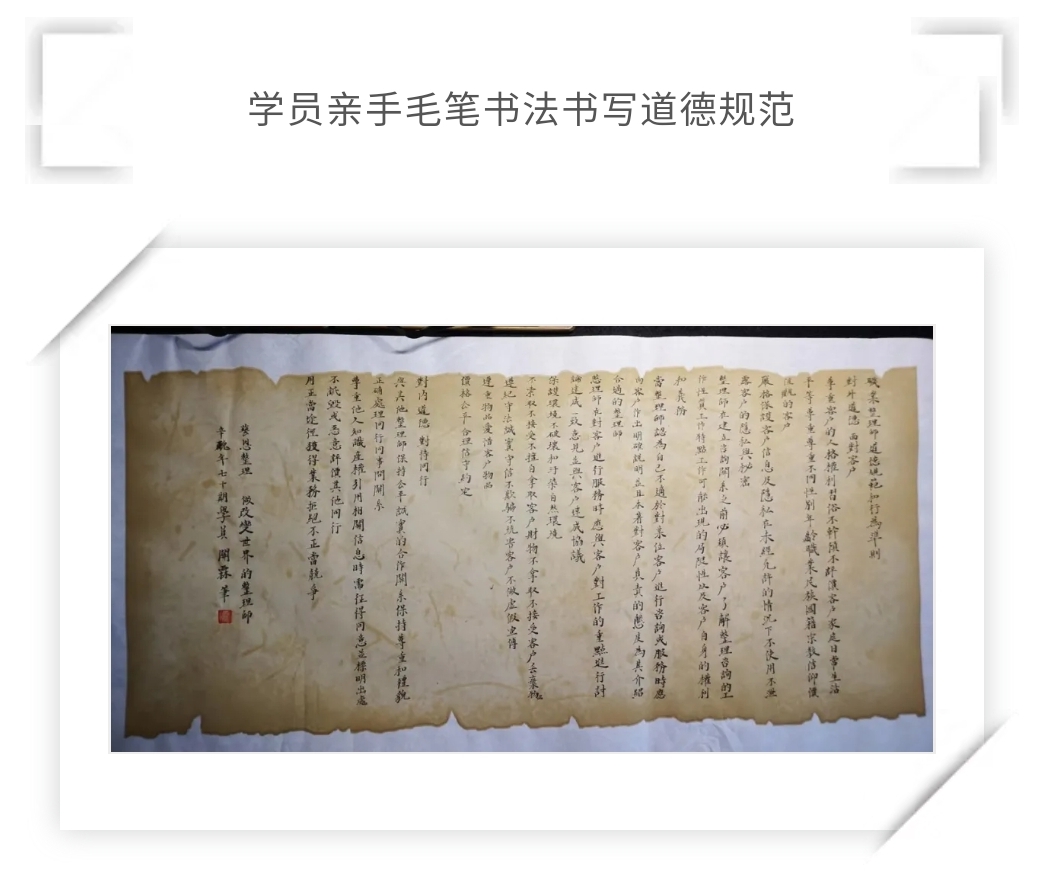 学员亲手毛笔书法书写道德规范
職業整理師道德規範和行為準則
對外道德 面對客户
尊重客户的人格權利習俗不幹預不評漢客户家庭日常生活
平等尊重尊重不同性别年齡職業民族國籍宗教信仰價
值觀的客户
嚴格保護客户信息及隱私在未經允許的情况下不使用不泄
露客户的隱私與秘密
整理師在建立咨詢關系之前必須讓客户了解整理咨詢的工
作性質工作特點工作可能出現的局限性以及客户自身的權利
和義務
當整理師認為自己不適於對某位客户進行咨詢或服務時應
向客户作出明確説明並且本着對客户負責的態度為其介紹
合適的整理師
整理師在對客户進行服務時應與客户對工作的重點進行討
論達成一致意見並與客户達成協議
保護環境不破壞和汙染自然環境
不索取不接受不擅自拿取客户財物不拿取不接受客户丢棄物
遵紀守法誠實守信不欺騙不坑害客户不做虚假宣傳
連重物品愛惜客户物品
價格公平合理信守約定
對内道德 對待同行
與其他整理師保持公平誠實的合作關系保持尊重和禮貌
正確處理同行同事間關系
尊重他人知識產權引用相關信息時需征得同意並標明出處
不詆毁或惡意評價其他同行
用正當途徑獲得業務拒絕不正當競爭
整理 做改變世界的整理師
年七十期學員